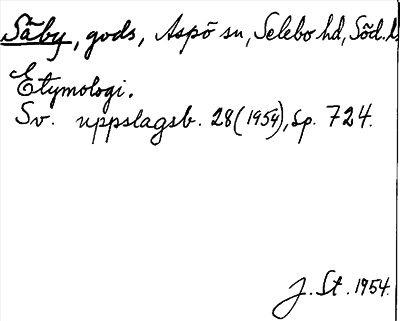 Säby, gods, Aspö sn, Selebo hd, Söd. l.
Etymologi.
Sv. uppslagsb. 28 (1954), sp. 724.
J. St. 1954.